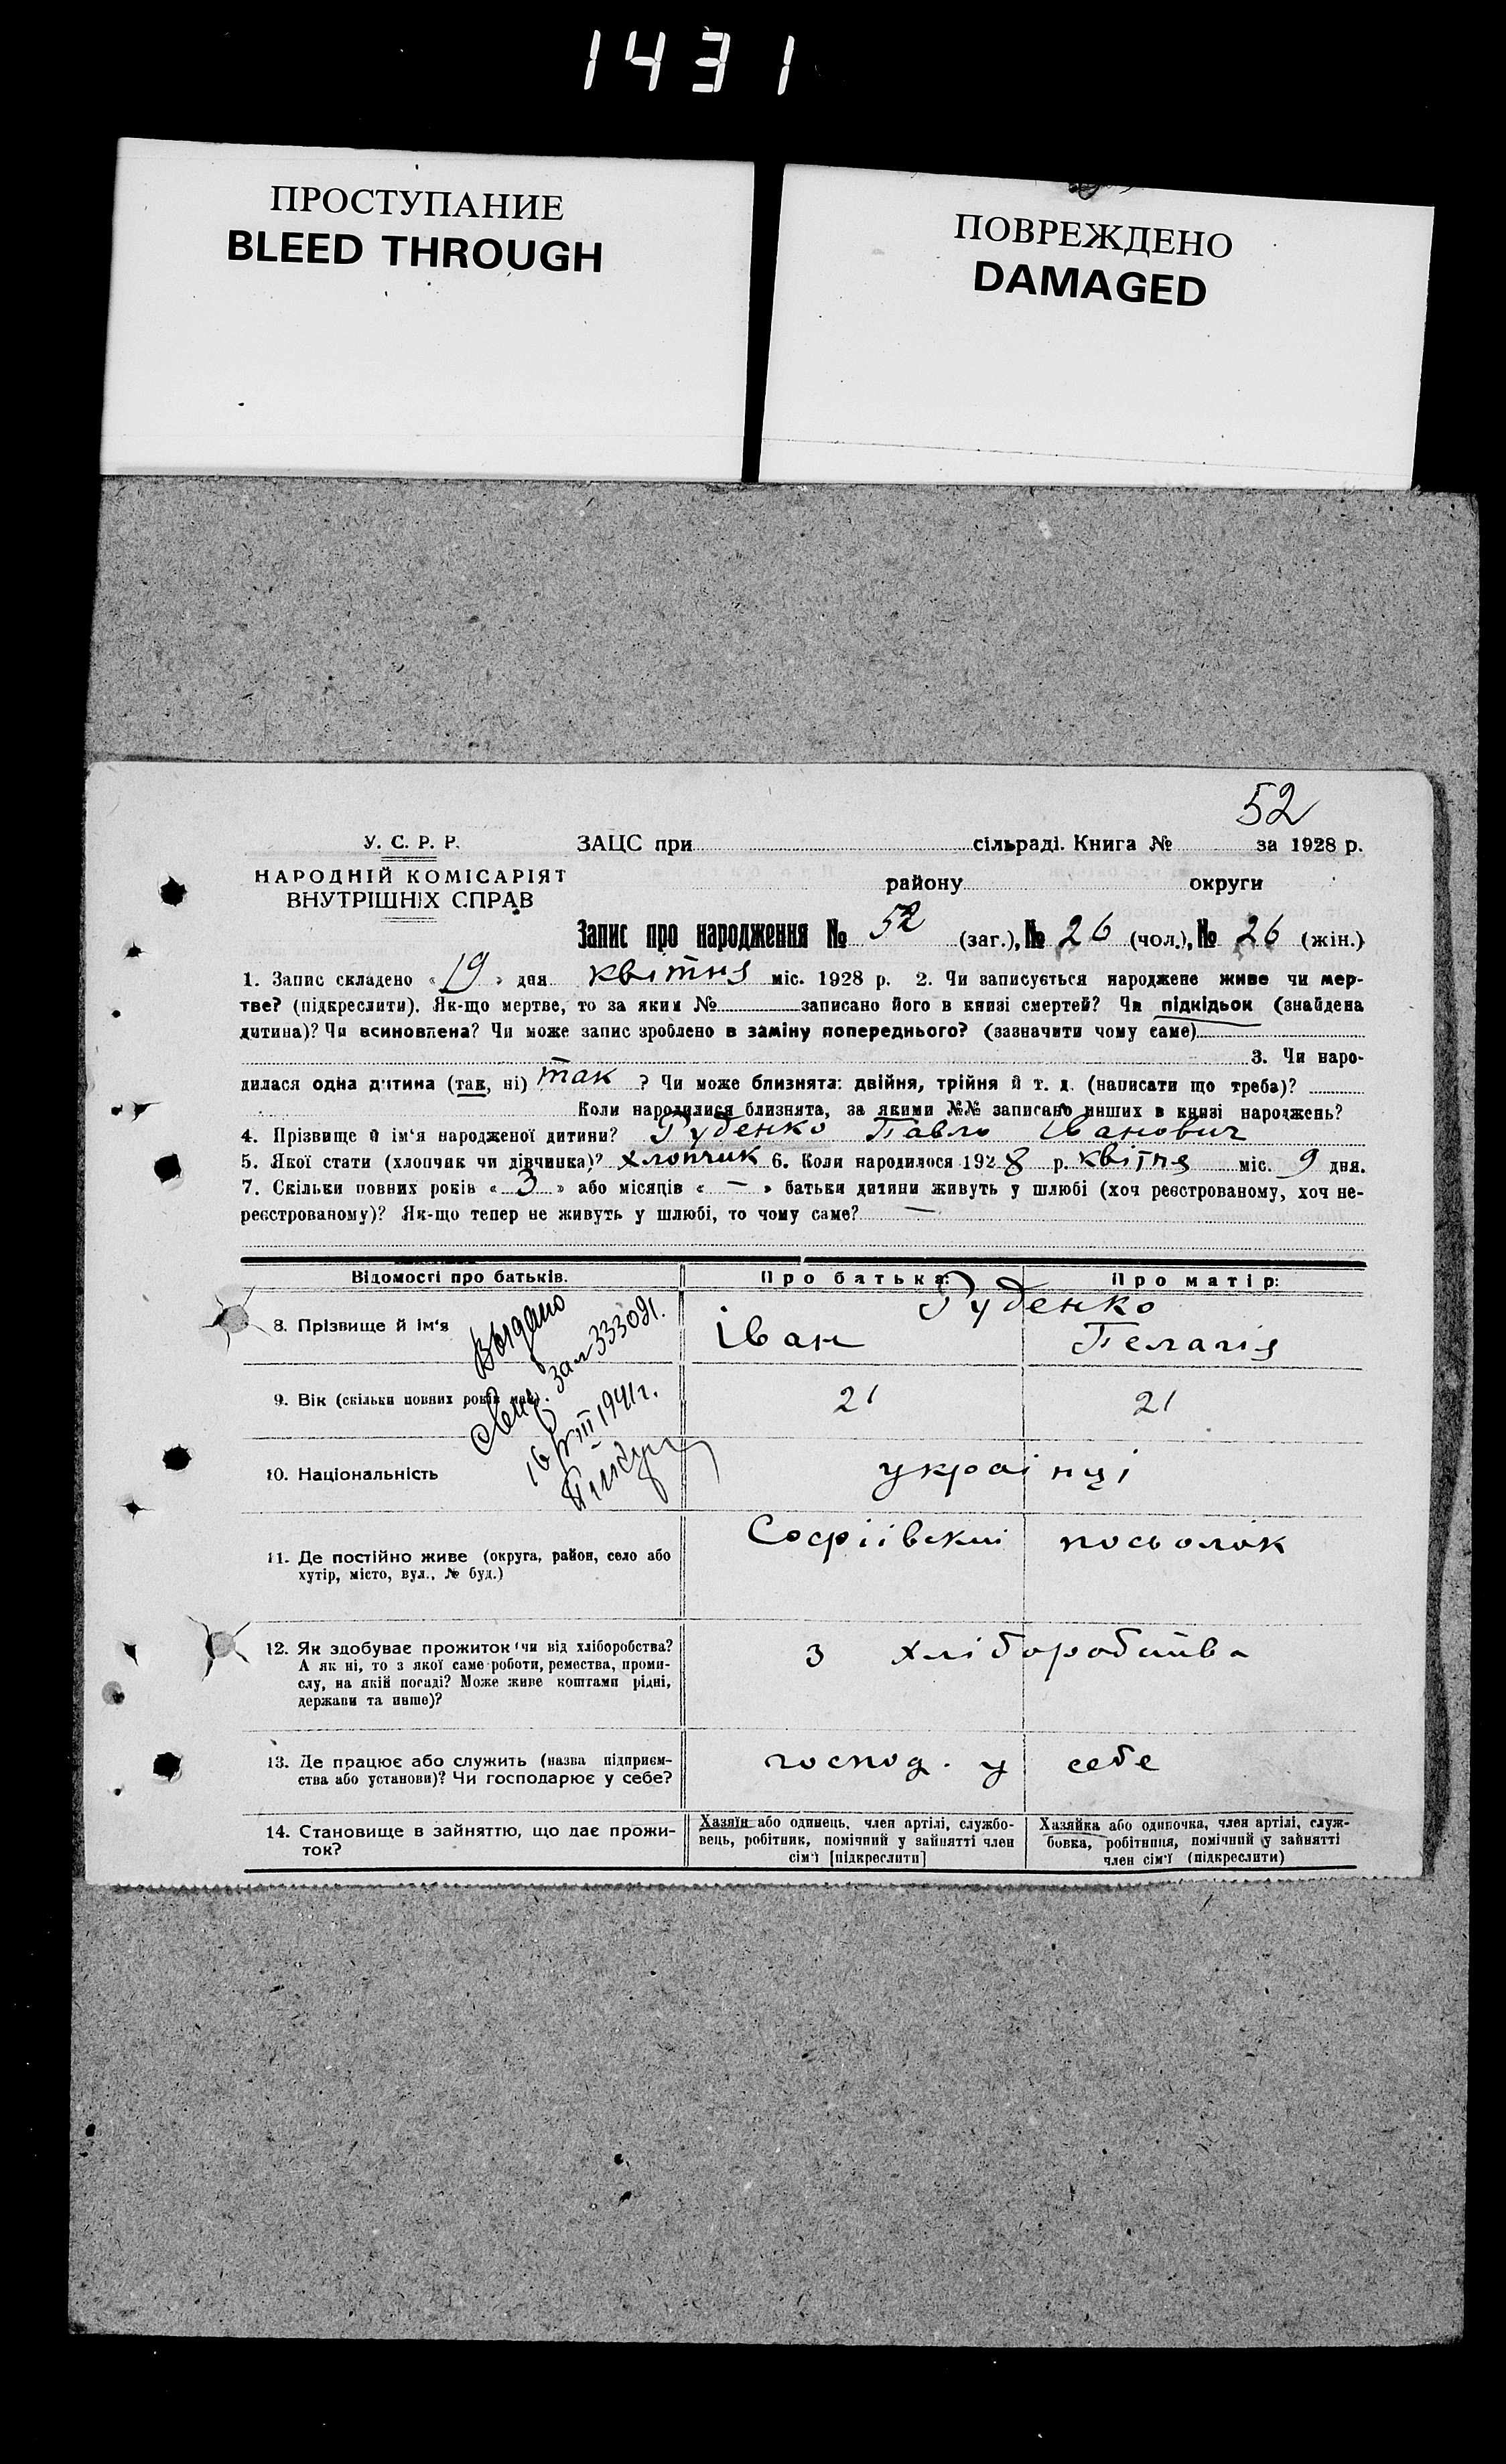 1431
ПРОСТУПАНИЕ
BLEED THROUGH
ПОВРЕЖДЕНО
DAMAGED
52
У. С. Р. Р.
НАРОДНІЙ КОМІСАРІЯТ
ВНУТРІШНІХ СПРАВ
ЗАЦС при сільраді. Книга № за 1928 р.
району округи
Запис про народження № 52 (заг.), № 26 (чол.), № 26 (жін.)
1. Запис складено « 19 » дня квітня міс. 1928 р. 2. Чи записується народжене живе чи мер-
тве? (підкреслити). Як-що мертве, то за яким № записано його в книзі смертей? Чи підкідьок (знайдена
дитина)? Чи всиновлена? Чи може запис зроблено в заміну попереднього? (зазначити чому саме)
3. Чи наро-
дилася одна дитина (так, ні) так ? Чи може близнята: двійня, трійня й т. д. (написати що треба)?
Коли народилися близнята, за якими №№ записано инших в книзі народжень?
4. Прізвище й ім'я народженої дитини? Руденко Павло Іванович
5. Якої стати (хлопчик чи дівчинка)? хлопчик 6. Коли народилося 1928 р. квітня міс. 9 дня.
7. Скільки повних років « 3 » або місяців « — » батьки дитини живуть у шлюбі (хоч реєстрованому, хоч не-
реєстрованому)? Як-що тепер не живуть у шлюбі, то чому саме? —
Відомості про батьків. Про батька: Про матір:
Руденко
8. Прізвище й ім'я Іван Пелагія
Выдано
зал 333091.
9. Вік (скільки повних років має) 21 21
16/VIII 1941 г.
10. Національність українці
11. Де постійно живе (округа, район, село або
хутір, місто, вул., № буд.)
Софіївский посьолок
12. Як здобуває прожиток чи від хліборобства?
А як ні, то з якої саме роботи, ремества, проми-
слу, на якій посаді? Може живе коштами рідні,
держави та инше)?
з хліборобства
13. Де працює або служить (назва підприєм-
ства або установи)? Чи господарює у себе?
господ. у себе
14. Становище в зайняттю, що дає прожи-
ток?
Хазяїн або одинець, член артілі, службо-
вець, робітник, помічний у зайнятті член
сім'ї [підкреслити]
Хазяйка або одиночка, член артілі, служ-
бовка, робітниця, помічний у зайнятті
член сім'ї (підкреслити)